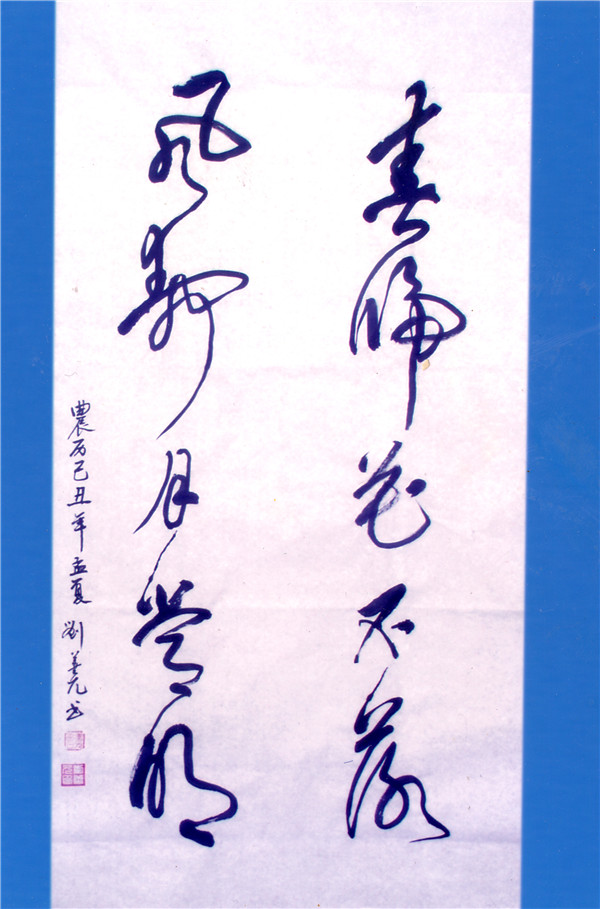 春归花不落
风静月常明
農历己丑年孟夏 劉善元书